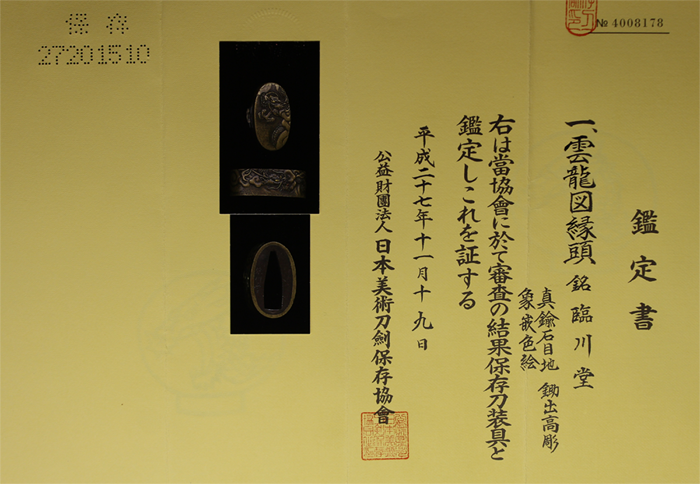 保存
27201510
№ 4008178
鑑定書
一、雲龍図縁頭 銘 臨川堂
真鍮石目地 鋤出高彫
象嵌色絵
右は當協會に於て審査の結果保存刀装具と
鑑定しこれを証する
平成二十七年十一月十九日
公益財團法人 日本美術刀劍保存協會